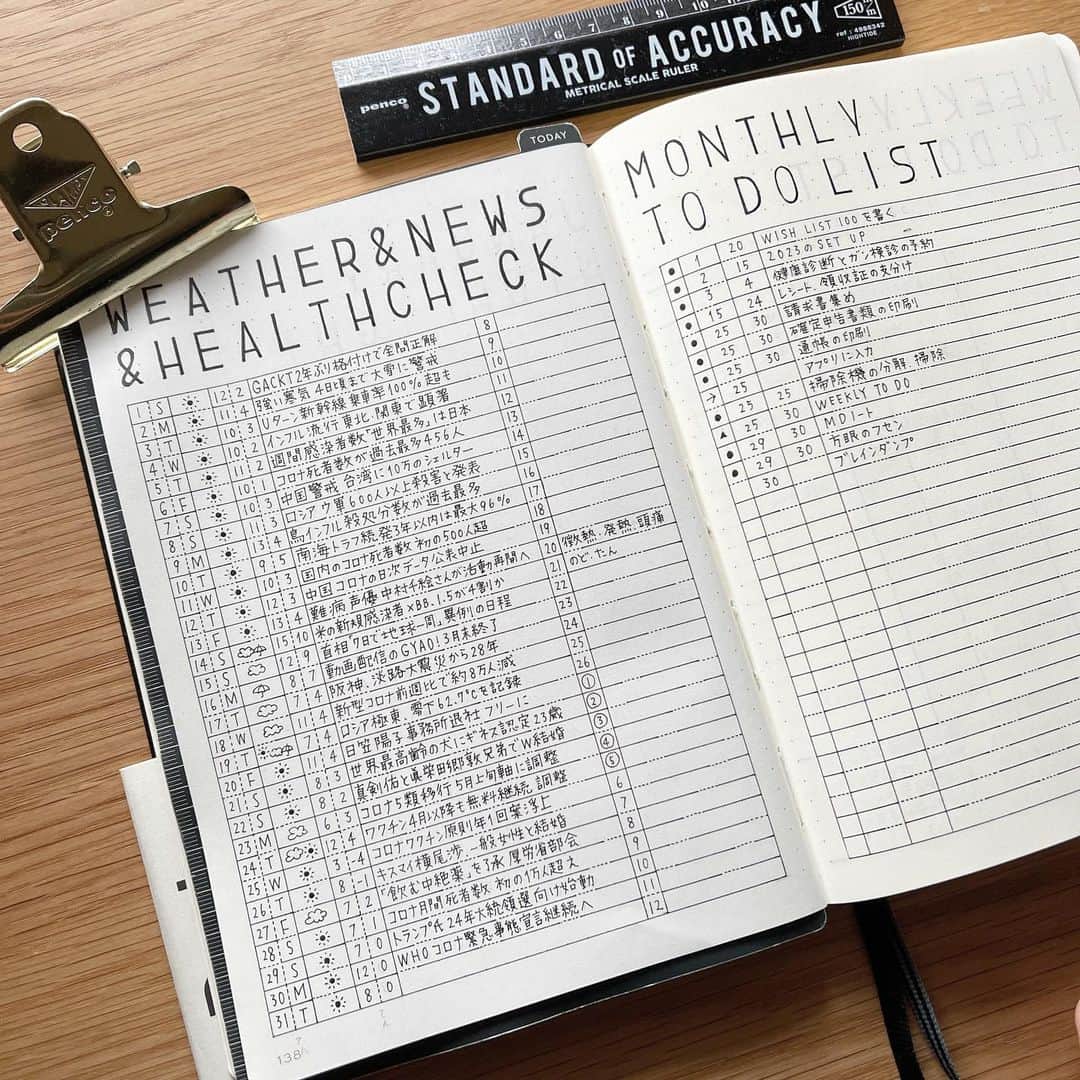 STANDARD OF ACCURACY
METRICAL SCALE RULER
penco
150
ref : 4996342
HIGHTIDE
CLAMPY
penco
TODAY
WEATHER&NEWS
&HEALTHCHECK
1 S 12 2 GACKT2年ぶり格付けで全問正解 8
2 M 11 4 強い寒気 4日頃まで大雪に警戒 9
3 T 10 3 Uターン新幹線乗車率100%超も 10
4 W 11 2 インフル流行東北、関東で顕著 11
5 T 10 1 週間感染者数「世界最多」は日本 12
6 F 11 3 コロナ死者数が過去最多456人 13
7 S 中国警戒 台湾に10万のシェルター 14
8 S 13 4 ロシアウ軍600人以上殺害と発表 15
9 M 鳥インフル殺処分数が過去最多 16
10 T 南海トラフ続発3年以内は最大96% 17
11 W 国内のコロナ死者数 初の500人超 18
12 T 中国コロナの日次データ公表中止 19
13 F 難病声優 中村千絵さんが活動再開へ 20 微熱.発熱.頭痛
14 S 15 10 米の新規感染者×BB.1.5が4割か 21 のど.たん
15 S 12 9 首相「7日で地球一周」異例の日程 22
16 M 8 7 動画配信のGYAO!3月末終了 23
17 T 7 4 阪神・淡路大震災から28年 24
18 W 11 4 新型コロナ前週比で約8万人減 25
19 T 7 4 ロシア極東 零下62.7℃を記録 26
20 F 11 4 日笠陽子 事務所退社 フリーに ①
21 S 8 3 世界最高齢の犬にギネス認定23歳 ②
22 S 8 2 真剣佑と眞栄田郷敦兄弟でW結婚 ③
23 M 6 3 コロナ5類移行5月上旬軸に調整 ④
24 T 12 4 ワクチン4月以降も無料継続 調整 ⑤
25 W 3 -4 コロナワクチン原則年1回案浮上 6
26 T 8 -1 キスマイ横尾渉 一般女性と結婚 7
27 F 7 2 「飲む中絶薬」を了承 厚労省部会 8
28 S 7 1 コロナ月間死者数 初の1万人超え 9
29 S 7 0 トランプ氏24年大統領選向け始動 10
30 M 12 0 WHOコロナ緊急事態宣言継続へ 11
31 T 8 0 12
138
MONTHLY
TO DO LIST
● 1 20 WISH LIST 100を書く
● 2 15 2023のSET UP
● 3 4 健康診断とガン検診の予約
● 15 24 レシート、領収証の支分け
● 25 30 請求書集め
● 25 30 確定申告書類の印刷
● 25 30 通帳の印刷
→ 25 アプリに入力
● 25 25 掃除機の分解、掃除
▲ 29 30 WEEKLY TO DO
● 29 30 MDノート
● 30 方眼のフセン
ブレインダンプ
WEEKLY
TO DO